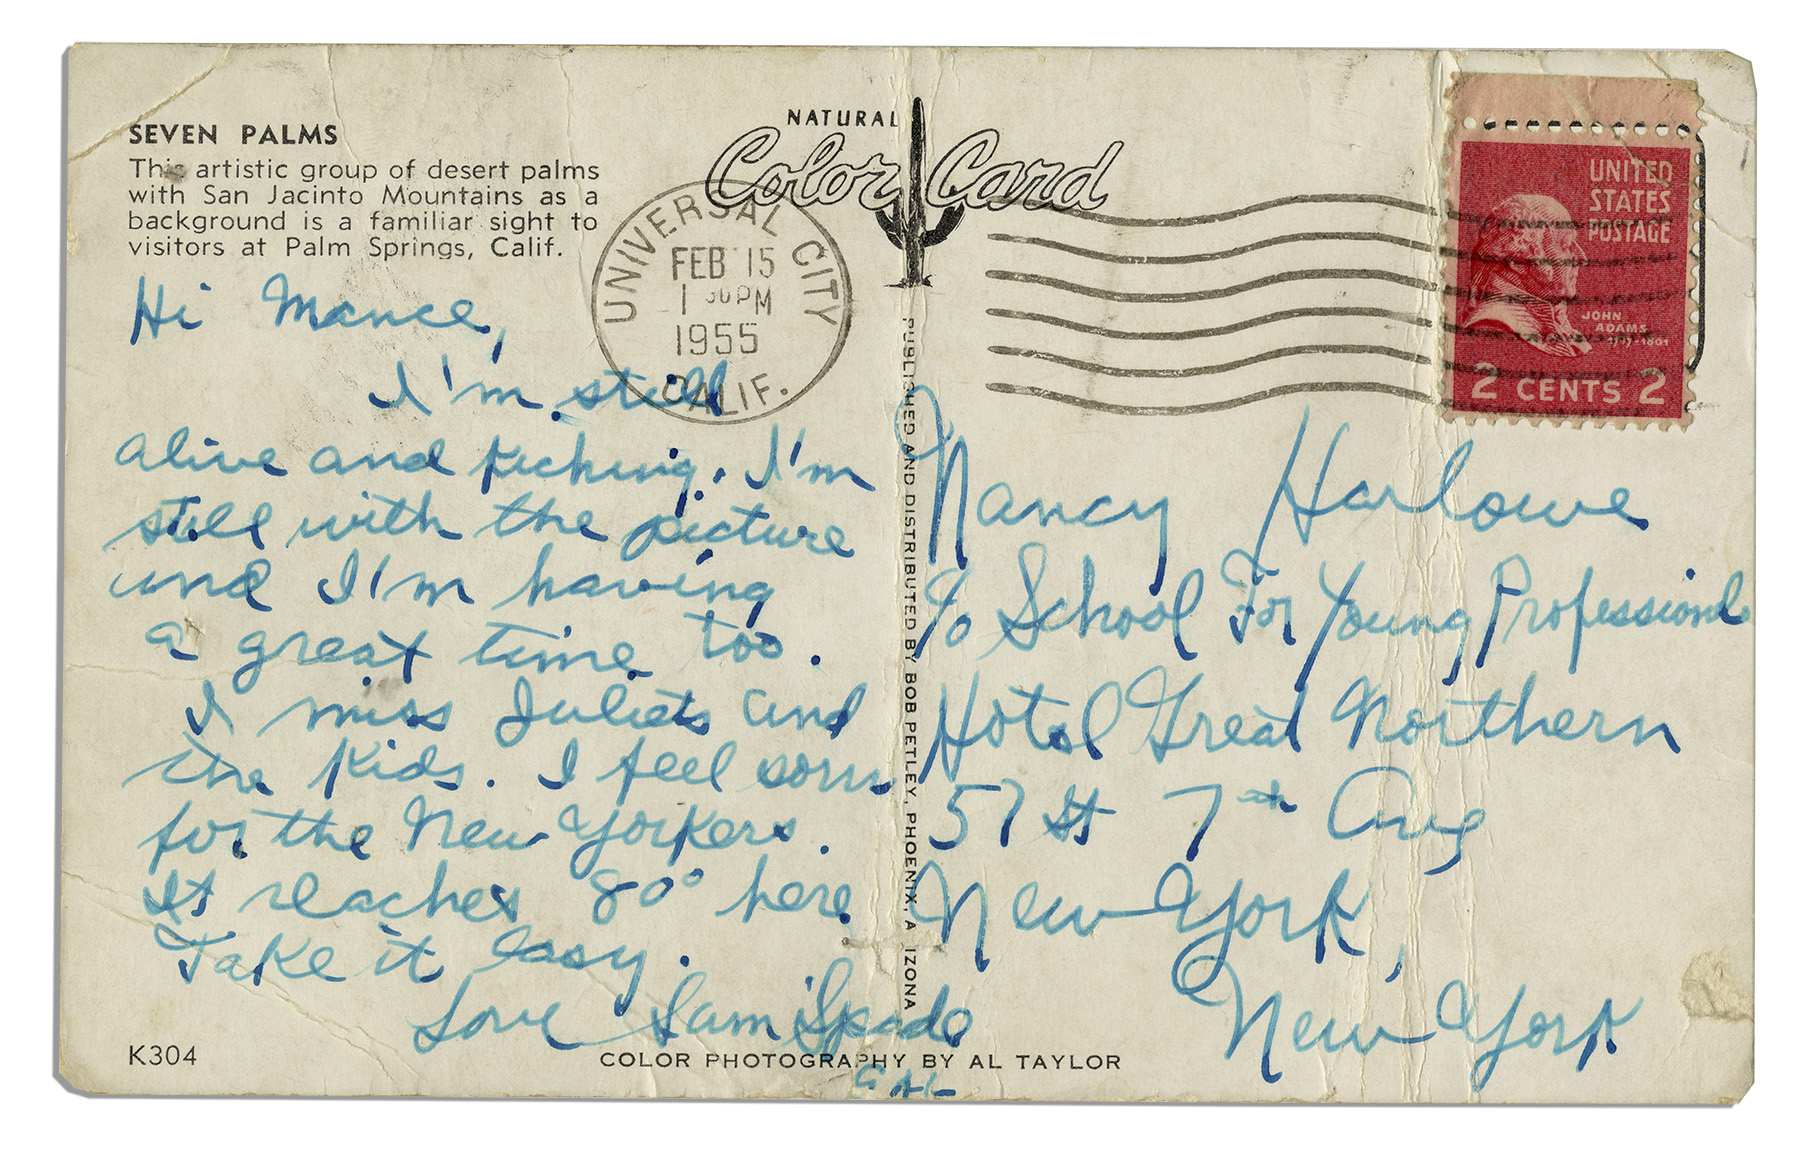 SEVEN PALMS
This artistic group of desert palms
with San Jacinto Mountains as a
background is a familiar sight to
visitors at Palm Springs, Calif.
NATURAL
Color Card
UNIVERSAL CITY
FEB 15
1 30 PM
1955
CALIF.
UNITED
STATES
POSTAGE
JOHN
ADAMS
1797-1801
2 CENTS 2
Hi Mance,
I'm still
alive and kicking. I'm
still with the picture
and I'm having
a great time too.
I miss Juliets and
the kids. I feel sorry
for the New Yorkers.
It reaches 80° here
Take it easy.
Love Sam Spade
PUBLISHED AND DISTRIBUTED BY BOB PETLEY, PHOENIX, A IZONA
Nancy Harlowe
% School For Young Professionals
Hotel Great Northern
57 St 7th Ave
New York,
New York
K304
COLOR PHOTOGRAPHY BY AL TAYLOR